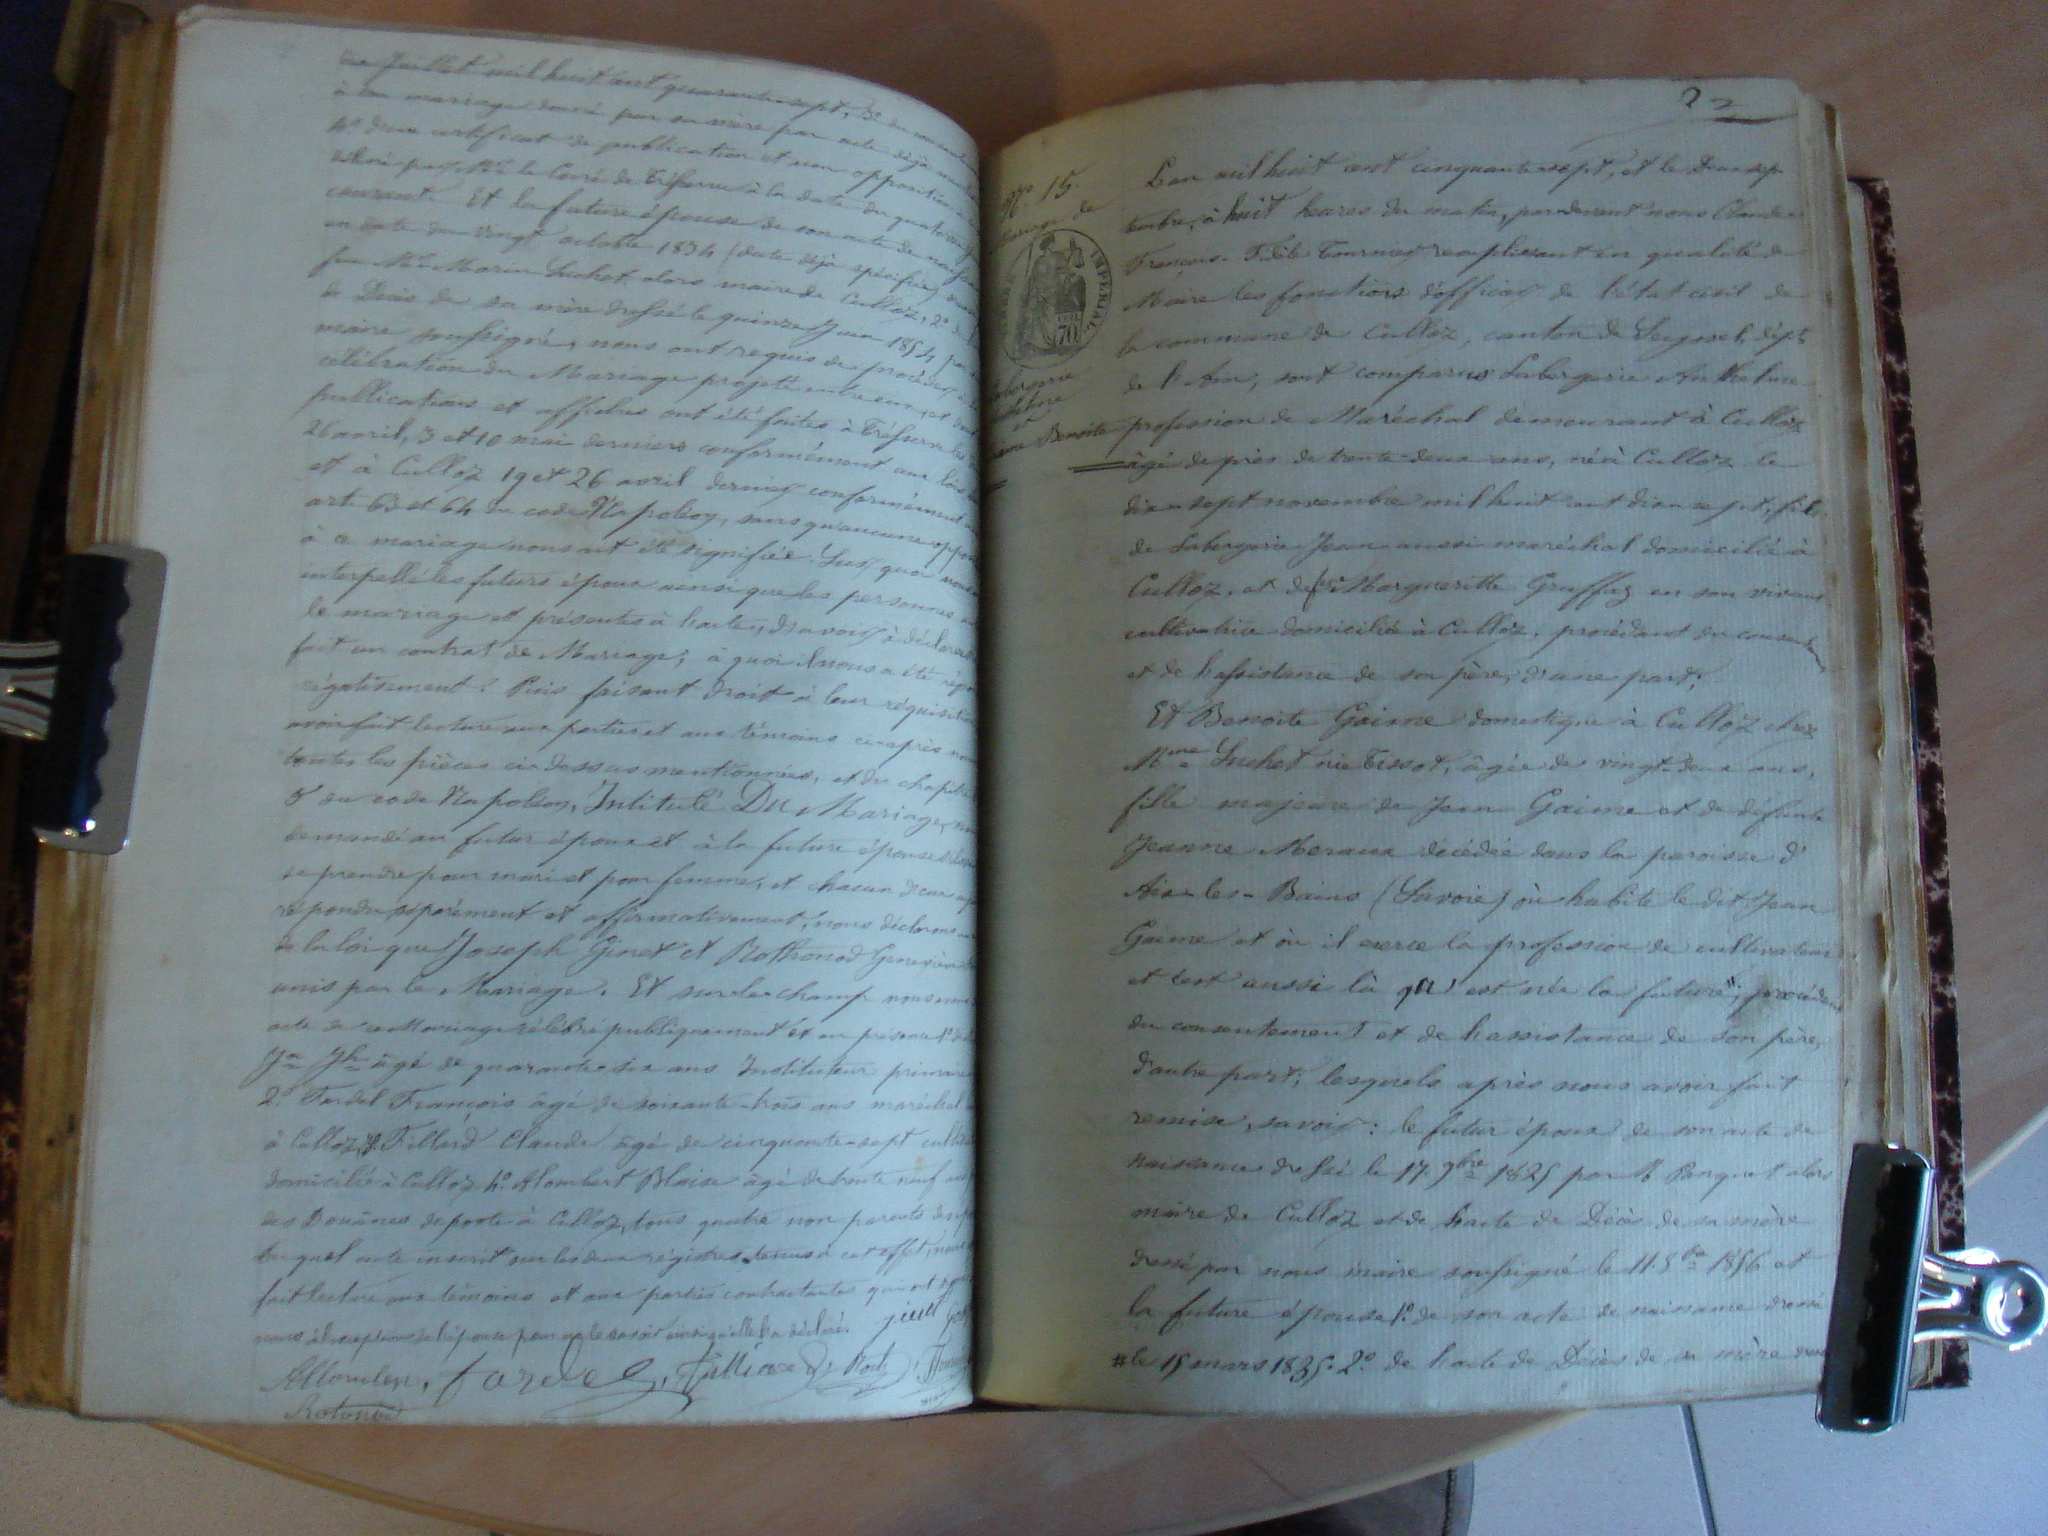 de Juillet mil huit cent quarante-sept, 3º du consentement
à ce mariage donné par sa mère par acte déjà
4º d'un certificat de publication et non opposition
délivré par Mr le Curé de Trésserve à la date du quatorze
courant. Et la future épouse de son acte de naissance
en date du vingt octobre 1834 (date déjà spécifiée)
feu Mr Marin Luchet alors maire de Culloz, 2º de
de Décès de sa mère dressé le quinze Juin 1854 par
maire soussigné, nous ont requis de procéder à la
célébration du Mariage projeté entre eux, et dont
publications et affiches ont été faites à Trésserve les
26 avril, 3 et 10 mai derniers conformément aux lois
et à Culloz 19 et 26 avril dernier conformément
art. 63 et 64 du code Napoléon, sans qu'aucune opposition
à ce mariage nous ait été signifiée. Sur quoi nous
interpellé les futurs époux ainsi que les personnes
le mariage et présentes à l'acte, d'avoir à déclarer
fait un contrat de Mariage; à quoi il nous a été répondu
négativement. Puis faisant droit à leur réquisition
avoir fait lecture aux parties et aux témoins ci-après
toutes les pièces ci-dessus mentionnées, et du chapitre
6 du code Napoléon, Intitulé Du Mariage,
demandé au futur époux et à la future épouse s'ils
se prendre pour mari et pour femme, et chacun d'eux
répondu séparément et affirmativement, nous déclarons au
de la loi que Joseph Ginet et Rothonod Geneviève
unis par le Mariage. Et sur-le-champ nous
acte de ce Mariage célébré publiquement et en présence 1º
Jn Jh âgé de quarante-six ans Instituteur primaire
2º Tardel François âgé de soixante-trois ans maréchal
à Culloz, 3º Fillard Claude âgé de cinquante-sept
domicilié à Culloz 4º Alombert Blaise âgé de trente neuf ans
des Douanes de poste à Culloz, tous quatre non parents des
Duquel acte inscrit sur les deux régistres tenus à cet effet,
fait lecture aux témoins et aux parties contractantes qui ont
nous à l'exception de l'épouse pour ne le savoir ainsi qu'elle l'a déclaré.
Allomber, tardel, Rotonod
22
Nº 15.
Mariage de
TIMBRE IMPÉRIAL
70
Labergerie
Anthelme
et
Gaime Benoite
L'an mil huit cent cinquante-sept, et le Deux sep-
tembre, à huit heures du matin, par-devant nous Claude-
François-Fidèle Tournier remplissant en qualité de
Maire les fonctions d'officier de l'état civil de
la commune de Culloz, canton de Seyssel, dépt
de l'Ain, sont comparus Labergerie Anthelme
profession de Maréchal demeurant à Culloz
âgé de près de trente-deux ans, né à Culloz le
dix-sept novembre mil huit cent dix-sept, fils
de Labergerie Jean aussi maréchal domicilié à
Culloz, et de feue Margueritte Gruffaz en son vivant
cultivatrice domiciliée à Culloz, procédant du consentement
et de l'assistance de son père, d'une part;
Et Benoite Gaime domestique à Culloz chez
Mme Luchet née Tissot, âgée de vingt-deux ans,
fille majeure de Jean Gaime et de défunte
Jeanne Meraux décédée dans la paroisse d'
Aix-les-Bains (Savoie) où habite le dit Jean
Gaime et où il exerce la profession de cultivateur
et c'est aussi là qu'est née la future #; procédant
du consentement et de l'assistance de son père,
d'autre part; lesquels après nous avoir fait
remise, savoir: le futur époux de son acte de
naissance dressé le 17 9bre 1825 par M Parquet alors
maire de Culloz et de l'acte de Décès de sa mère
dressé par nous maire soussigné le 11 8bre 1856 et
la future épouse 1º de son acte de naissance dressé
# le 15 mars 1835. 2º de l'acte de Décès de sa mère